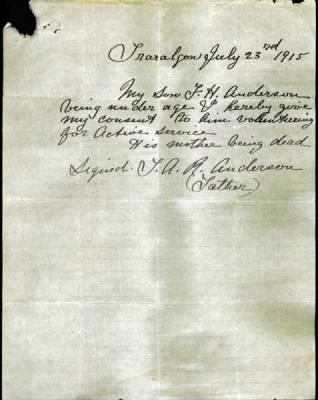 Traralgon July 23rd 1915
My Son F. H. Anderson
being under age I hereby give
my consent to him volunteering
for Active service
His mother being dead
Signed. F. A. R. Anderson
(Father)